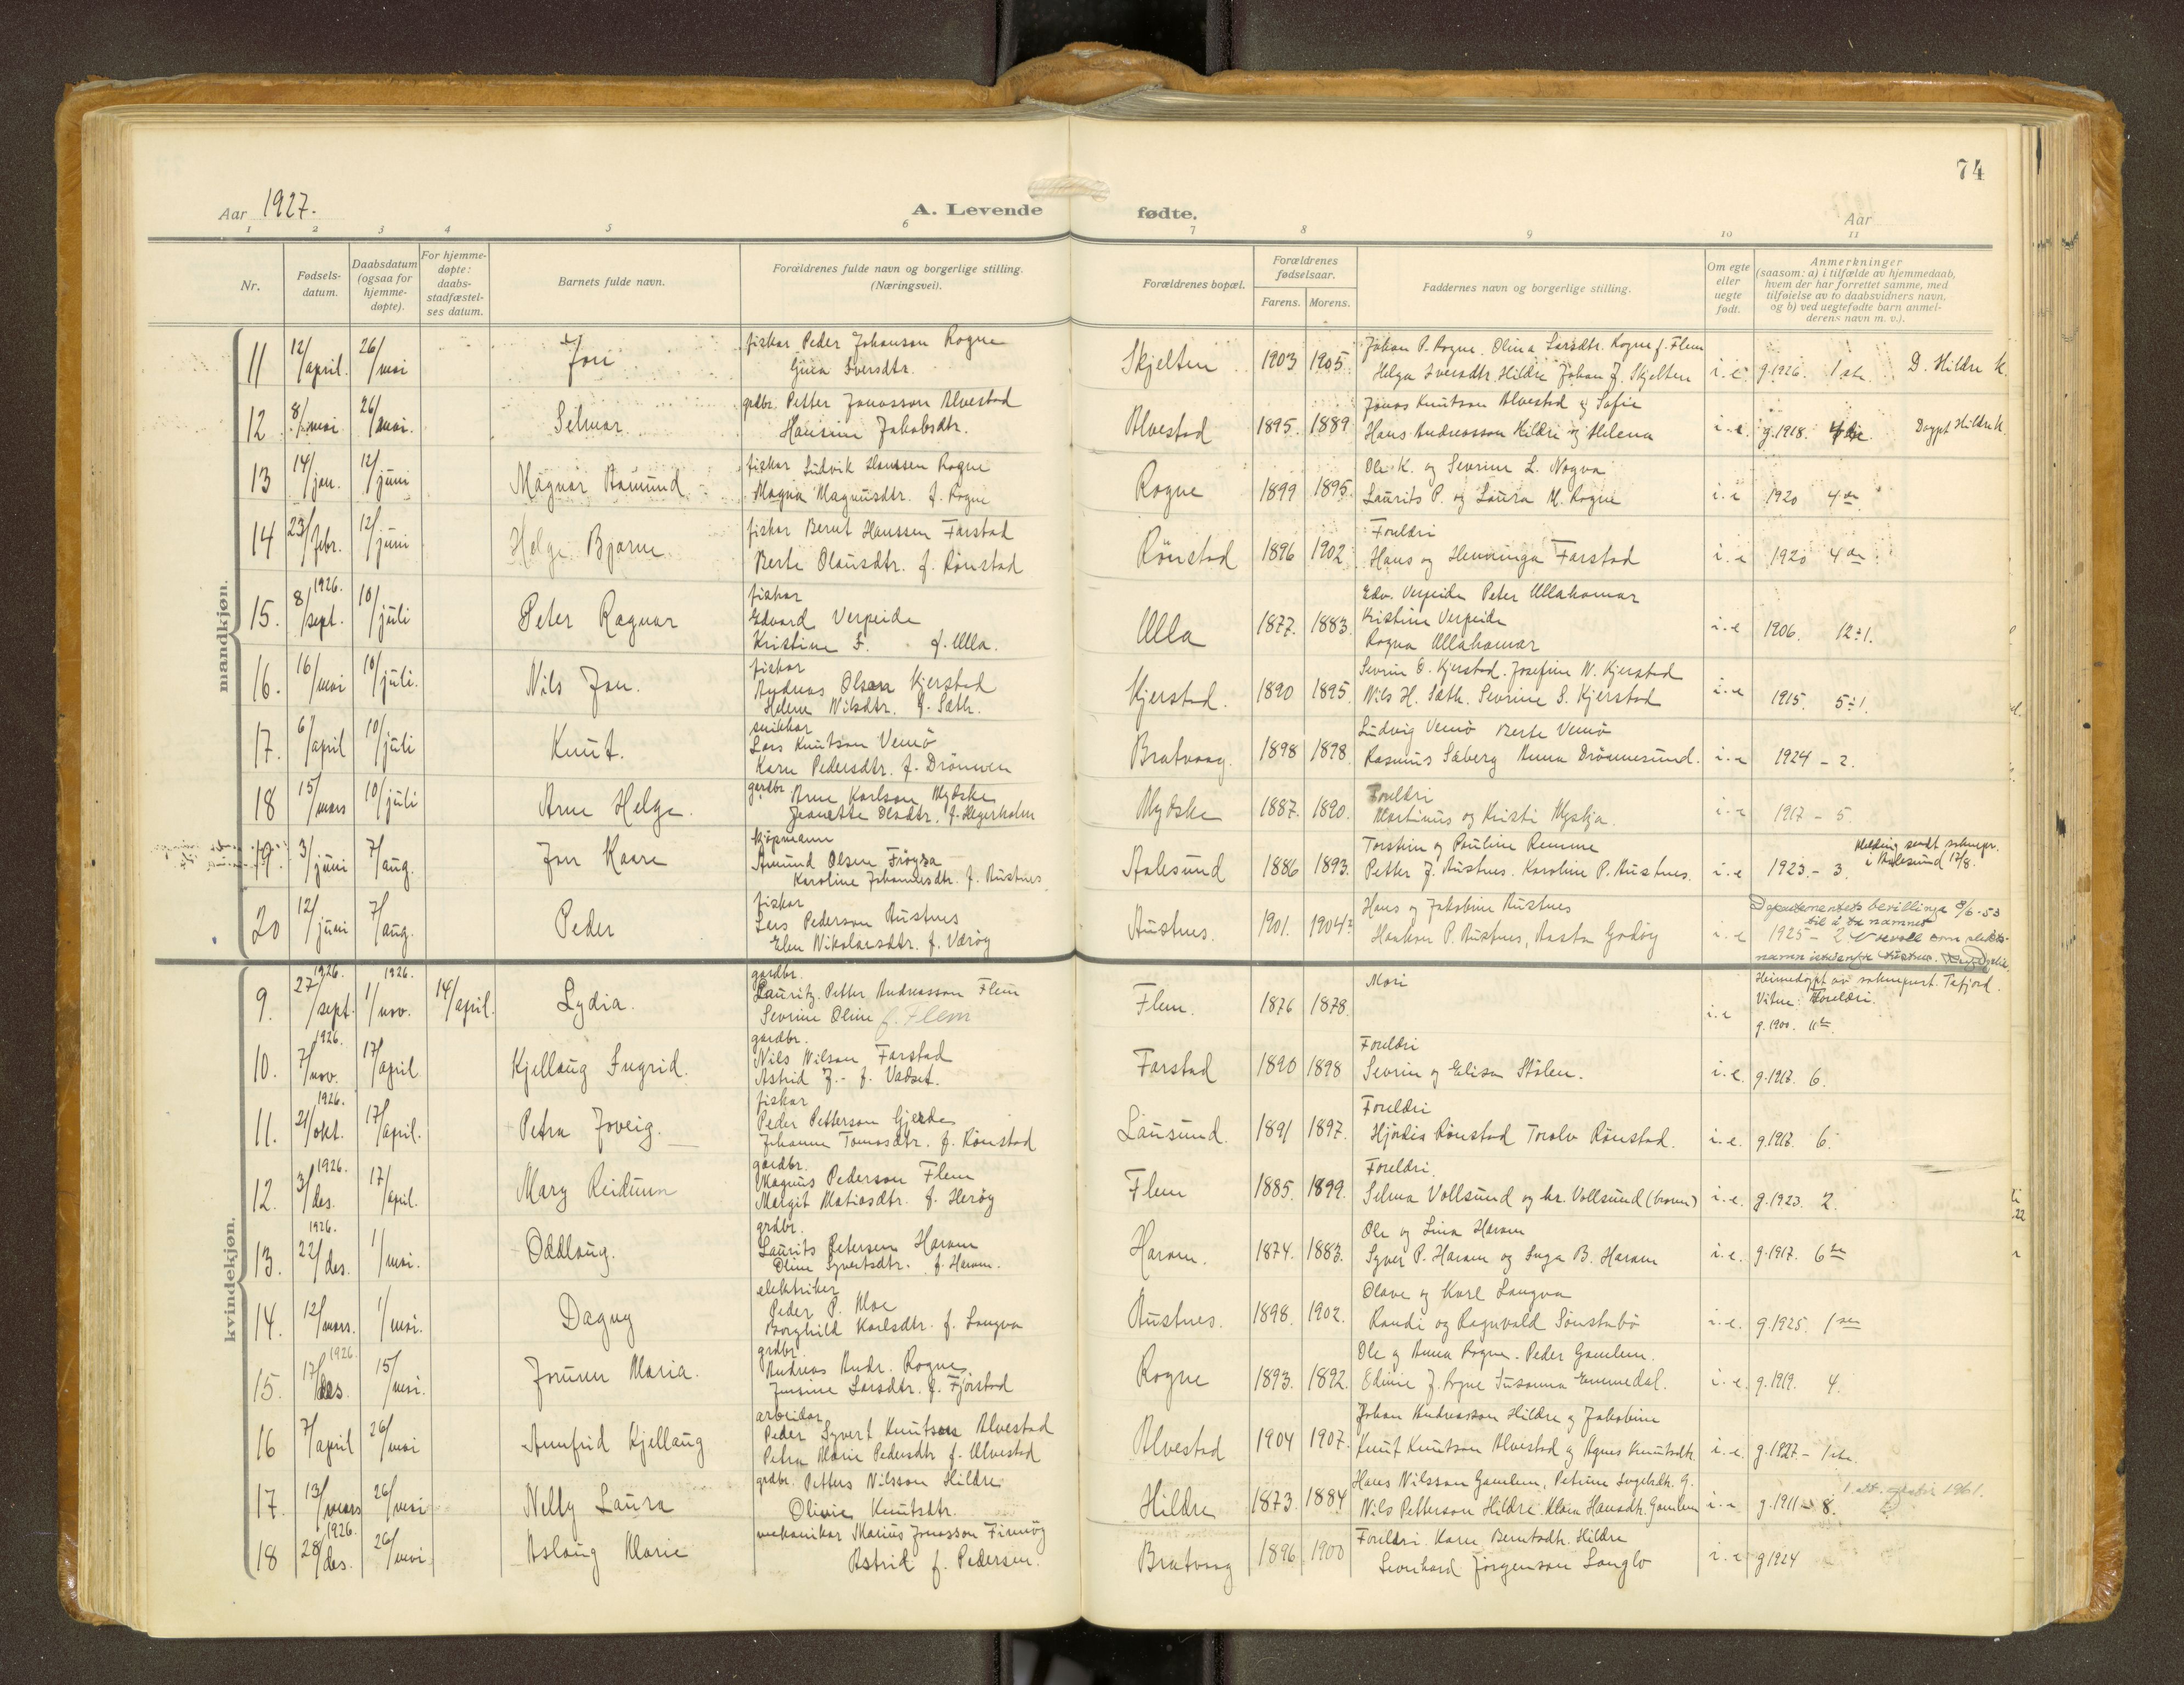 74
Aar 1927.
A. Levende fødte.
Aar
1 2 3 4 5 6 7 8 9 10 11
Nr.
Fødsels-
datum.
Daabsdatum
(ogsaa for
hjemme-
døpte).
For hjemme-
døpte:
daabs-
stadfæstel-
ses datum.
Barnets fulde navn.
Forældrenes fulde navn og borgerlige stilling.
(Næringsvei).
Forældrenes bopæl.
Forældrenes
fødselsaar.
Farens. Morens.
Faddernes navn og borgerlige stilling.
Om egte
eller
uegte
født.
Anmerkninger
(saasom: a) i tilfælde av hjemmedaab,
hvem der har forrettet samme, med
tilføielse av to daabsvidners navn,
og b) ved uegtefødte barn anmel-
derens navn m. v.).
mandkjøn.
11 12/april. 26/mai Jon
fiskar Peder Johanson Rogne
Gina Iversdtr.
Skjelten 1903 1905.
Johan P. Rogne. Olina Larsdtr. Rogne f. Flem
Helga Iversdtr. Hildre Johan J. Skjelten
i. e. g. 1926. 1 ste. D. Hildre k.
12 8/mai 26/mai. Selmar
grdbr. Petter Jonasson Alvestad
Hansine Jakobsdtr.
Alvestad 1895. 1889.
Jonas Knutson Alvestad og Sofie
Hans Andreasson Hildre og Helena
i. e. g. 1918. Døypt Hildre k.
13 14/jan. 12/juni Magnar Aamund
fiskar Ludvik Hanssen Rogne
Magna Magnusdtr. f. Rogne
Rogne 1899 1895.
Ole K. og Sevrine L. Nogva
Laurits P. og Laura M. Rogne
i. e 1920 4de
14 23/febr. 12/juni Helge Bjarne
fiskar Bernt Hanssen Farstad
Berte Olausdtr. f. Rønstad
Rønstad 1896 1902
Foreldri
Hans og Henninga Farstad
i. e 1920 4de
15. 8/sept. 1926. 10/juli Peter Ragnar
fiskar
Edvard Verpeide
Kristine F. f. Ulla.
Ulla 1877. 1883.
Edv. Verpeide Peter Ullahamar
Kristine Verpeide
Ragna Ullahamar
i. e 1906. 12÷1.
16. 16/mai 10/juli. Nils Jon.
fiskar
Andreas Olsen Kjerstad
Helene Nilsdtr. f. Sæth.
Kjerstad. 1890 1895.
Sevrin O. Kjerstad. Josefine N. Kjerstad
Nils H. Sæth. Sevrine S. Kjerstad
i. e 1915. 5÷1.
17. 6/april 10/juli Knut.
snikkar
Lars Knutson Vemø
Karn Pedersdtr. f. Drønnen
Bratvaag. 1898 1898.
Ludvig Vemø Berte Vemø
Rasmus Sæberg Anna Drønnesund.
i. e 1924 - 2.
18 15/mars 10/juli Arne Helge.
gardbr. Arne Karlson Mydske
Jeanette Olsdtr. f. Hegerholm
Mydske 1887. 1890.
Foreldri
Martinus og Kristi Myskja.
i. e 1917 - 5.
19. 3/juni 7/aug. Jon Kaare
kjøpmann
Amund Olsen Frøysa
Karoline Johannesdtr. f. Austnes.
Aalesund 1886 1893.
Torstein og Pauline Remme
Petter J. Austnes. Karoline P. Austnes.
i. e 1923. - 3. Melding sendt sokneprr.
i Aalesund 17/8.
20 12/juni 7/aug. Peder
fiskar
Lars Pederson Austnes
Elen Nikolaisdtr. f. Værøy
Austnes. 1901. 1904.
Hans og Jakobine Austnes
Haakon P. Austnes, Aasta Godøy
i. e 1925 - 2
Departementets bevilling 9/6-53
til å ta namnet
kvindekjøn.
9. 27/sept. 1926. 1/nov. 1926. 14/april. Lydia.
gardbr.
Lauritz Petter Andreasson Flem
Sevrine Oline f. Flem
Flem. 1876 1878.
Mari
i. e Heimedøypt av sokneprest. Tafjord.
Vitne: Foreldri.
g. 1900. 11te
10. 7/nov. 1926. 17/april Kjellaug Ingrid.
gardbr.
Nils Nilson Farstad
Astrid J. - f. Vadset.
Farstad 1890 1898
Foreldri
Sevrin og Elisa Stølen.
i. e. g. 1917. 6.
11. 21/okt. 1926. 17/april. Petra Joveig.
fiskar
Peder Petterson Gjerde
Johanne Tomasdtr. f. Rønstad
Lausund. 1891 1897.
Foreldri
Hjørdis Rønstad Torolv Rønstad.
i. e. g. 1917. 6.
12. 3/des. 1926. 17/april. Mary Reidunn
gardbr.
Magnus Pederson Flem
Margit Matiasdtr. f. Herøy
Flem 1885. 1899.
Foreldri
Selma Vollsund og hr. Vollsund
i. e. g. 1923. 2.
13. 22/des. 1926. 1/mai. Oddlaug.
grdbr.
Laurits Petersen Haram
Oline Syvertsdtr. f. Haram.
Haram. 1874. 1883.
Ole og Lina Haram
Syver P. Haram og Inga B. Haram
i. e. g. 1917. 6te
14. 12/mars. 1/mai. Dagny
elektriker
Peder P. Moe
Borghild Karlsdtr. f. Longva
Austnes. 1898. 1902.
Olave og Karl Longva
Randi og Ragnvald Sønstabø
i. e. g. 1925. 1ste
15. 17/des. 1926. 15/mai. Jorunn Maria.
grdbr.
Andreas Andr. Rogne
Jensine Larsdtr. f. Fjørstad
Rogne 1893. 1892.
Ole og Anna Rogne. Peder Gamlem.
Edvine J. Rogne Susanna Emmedal.
i. e. g. 1919. 4.
16 7/april 26/mai Arnfrid Kjellaug
arbeidar
Peder Syvert Knutson Alvestad
Petra Marie Pedersdtr f. Alvestad
Alvestad 1904 1907.
Johan Andreasson Hildre og Jakobine
Knut Knutson Alvestad og Agnes Knutsdtr.
i. e. g. 1927 - 1 ste.
17. 13/mars 26/mai Nelly Laura
grdbr. Petter Nilsson Hildre
Olivie Knutsdtr.
Hildre 1873. 1884
Hans Nilsson Gamlem, Petrine Ingebr.dtr. G.
Nils Petterson Hildre. Klara Hansdtr. Gamlem
i. e g. 1911 - 8. 1961.
18 28/des. 1926. 26/mai Aslaug Marie
mekanikar Marius Jonasson Firnøy
Astrid f. Pedersen.
Bratvaag 1896 1900
Foreldri. Karn Berntsdtr. Hildre
Leonhard Jørgenson Longlo
i. e g 1924